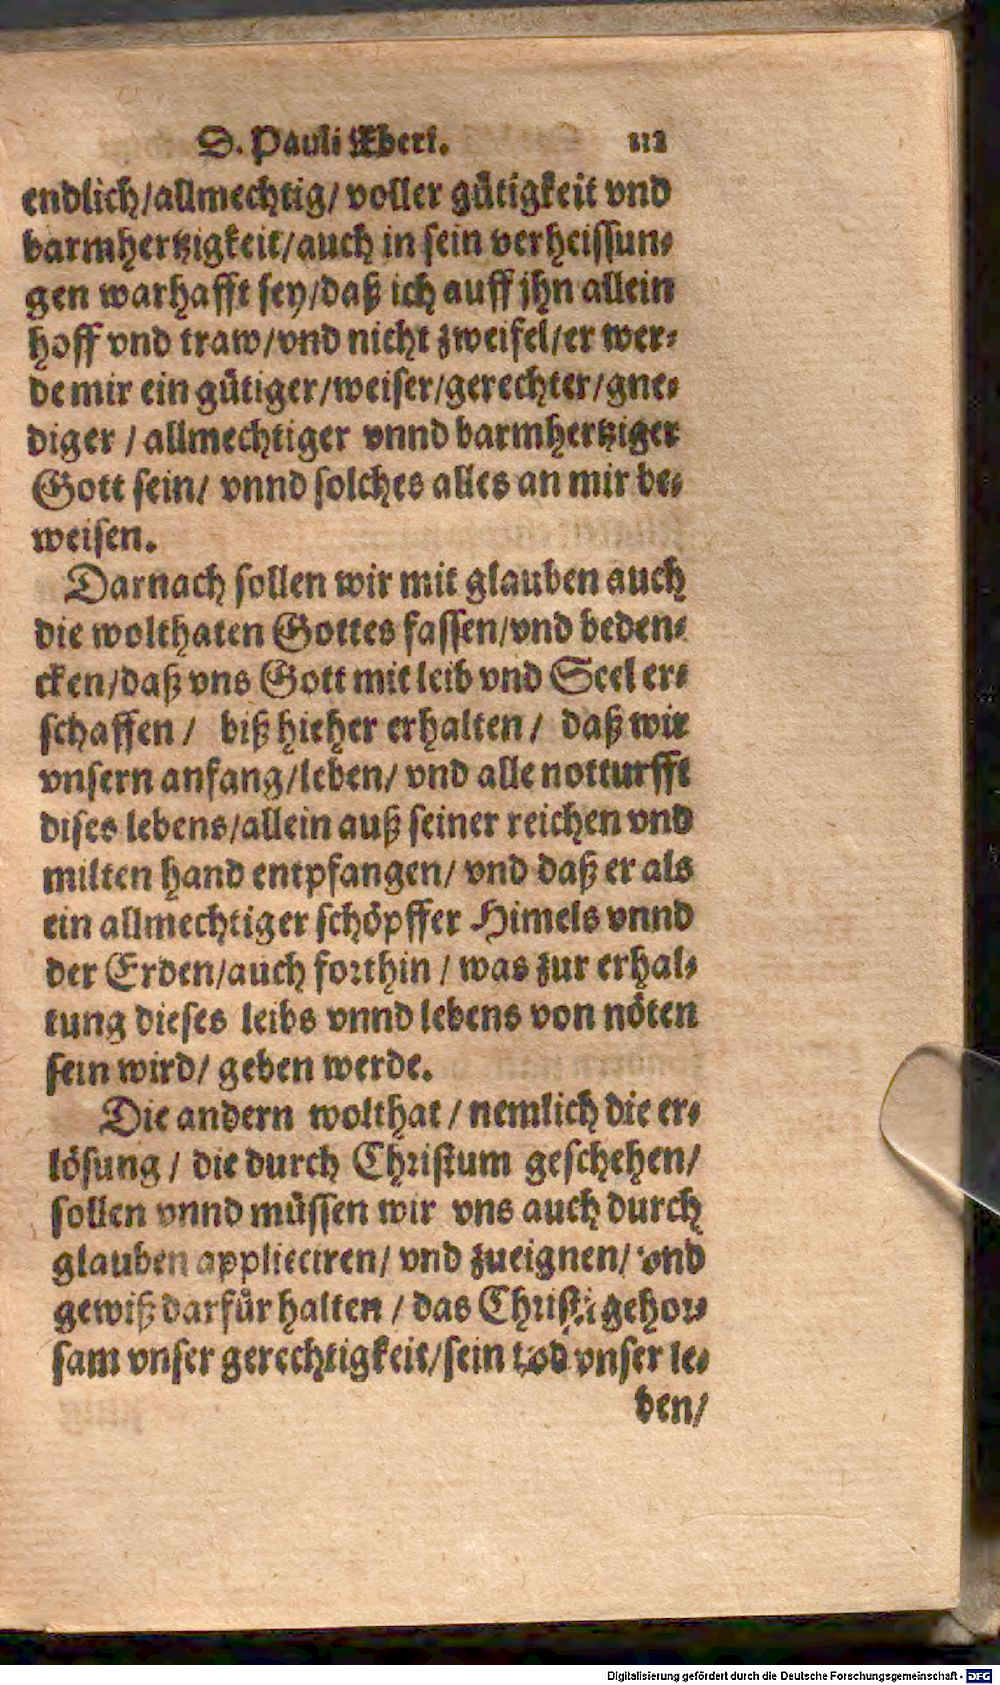 D. Pauli Eberi. 112
endlich/allmechtig/ voller gütigkeit vnd
barmhertzigkeit/auch in sein verheissun-
gen warhafft sey/daß ich auff jhn allein
hoff vnd traw/vnd nicht zweifel/er wer-
de mir ein gütiger/weiser/gerechter/gne-
diger / allmechtiger vnnd barmhertziger
Gott sein/ vnnd solches alles an mir be-
weisen.
Darnach sollen wir mit glauben auch
die wolthaten Gottes fassen/vnd beden-
cken/daß vns Gott mit leib vnd Seel er-
schaffen / biß hieher erhalten / daß wir
vnsern anfang/leben/ vnd alle notturfft
dises lebens/allein auß seiner reichen vnd
milten hand entpfangen/ vnd daß er als
ein allmechtiger schöpffer Himels vnnd
der Erden/auch forthin / was zur erhal-
tung dieses leibs vnnd lebens von nöten
sein wird/ geben werde.
Die andern wolthat / nemlich die er-
lösung / die durch Christum geschehen/
sollen vnnd müssen wir vns auch durch
glauben appliciren/ vnd zueignen/ vnd
gewiß darfür halten / das Christi gehor-
sam vnser gerechtigkeit/sein tod vnser le-
ben/
Digitalisierung gefördert durch die Deutsche Forschungsgemeinschaft - DFG